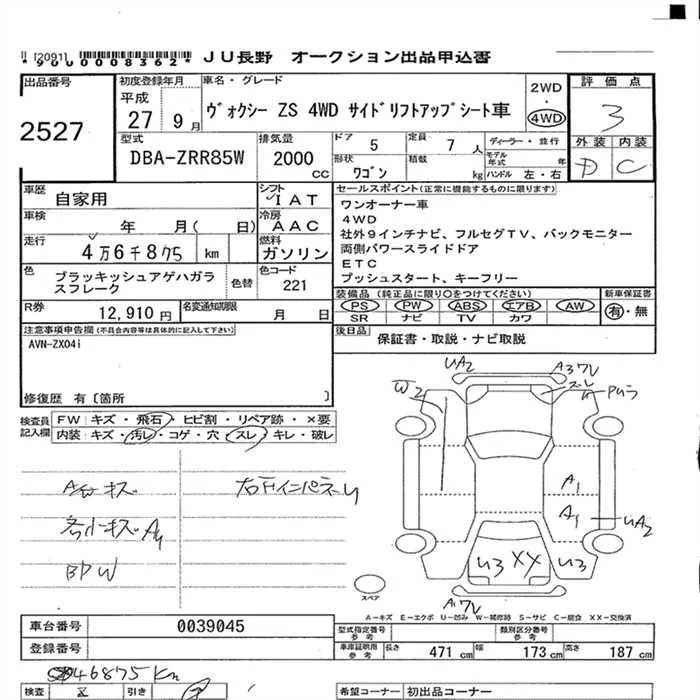 [2091] JU長野 オークション出品申込書
*9000008362*
出品番号
2527
初度登録年月
平成
27年9月
車名・グレード
ヴォクシー ZS 4WD サイドリフトアップシート車
2WD
・
4WD
評価点
3
外装 内装
D C
型式
DBA-ZRR85W
排気量
2000
CC
ドア 5
定員 7人
形状 ワゴン
積載 kg
ディーラー・並行
モデル年式 年
ハンドル 左・右
車歴
自家用
シフト
IAT
車検
年 月( 日)
冷房
AAC
走行
4万6千875 km
燃料
ガソリン
色
ブラッキッシュアゲハガラスフレーク
色替
色コード
221
R券
12,910円
名変通知期限
月 日
セールスポイント(正常に機能するものに限ります)
ワンオーナー車
4WD
社外9インチナビ、フルセグTV、バックモニター
両側パワースライドドア
ETC
プッシュスタート、キーフリー
装備品(純正品に限り○をつけてください)
PS PW ABS エアB AW
SR ナビ TV カワ
新車保証書
有・無
後日品
保証書・取説・ナビ取説
注意事項申告欄(不具合内容等は具体的に記入して下さい)
AVN-ZX04i
修復歴 有〔箇所 〕
検査員記入欄
FW キズ・飛石・ヒビ割・リペア跡・×要
内装 キズ・汚レ・コゲ・穴・スレ・キレ・破レ
キズ
各小キズ A
UA2
A3 ワレ
スレ
W2
A1
A1
UA2
U3 XX U3
A1 ワレ
スペア
A-キズ E-エクボ U-凹み W-補修跡 S-サビ C-腐食 XX-交換済
車台番号
0039045
登録番号
型式指定番号
参考
類別区分番号
参考
車庫証明用
参考
長さ 471 cm
幅 173 cm
高さ 187 cm
46875 Km
検査
引き
希望コーナー
初出品コーナー